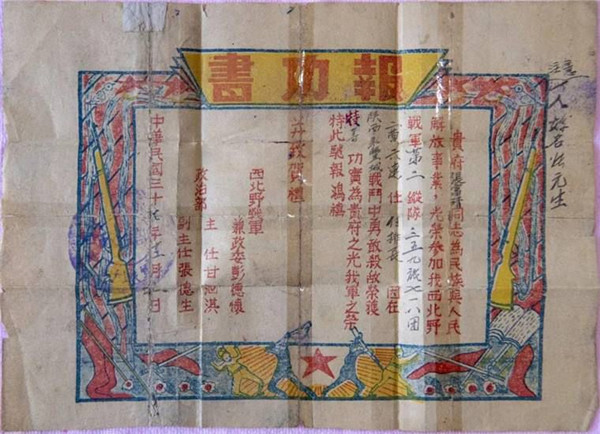 報功書
貴府張富清同志為民族與人民
解放事業，光榮參加我西北野
戰軍第二縱隊三五九旅七一八团
二营六連任排長因在
陕西永豐城戰鬥中勇敢殺敵榮獲
特等功實為貴府之光我軍之榮
特此馳報鴻禧
并致賀
西北野戰軍
兼政委彭德懷
政治部
主任甘泗淇
副主任張德生
中華民國三十七年十二月日